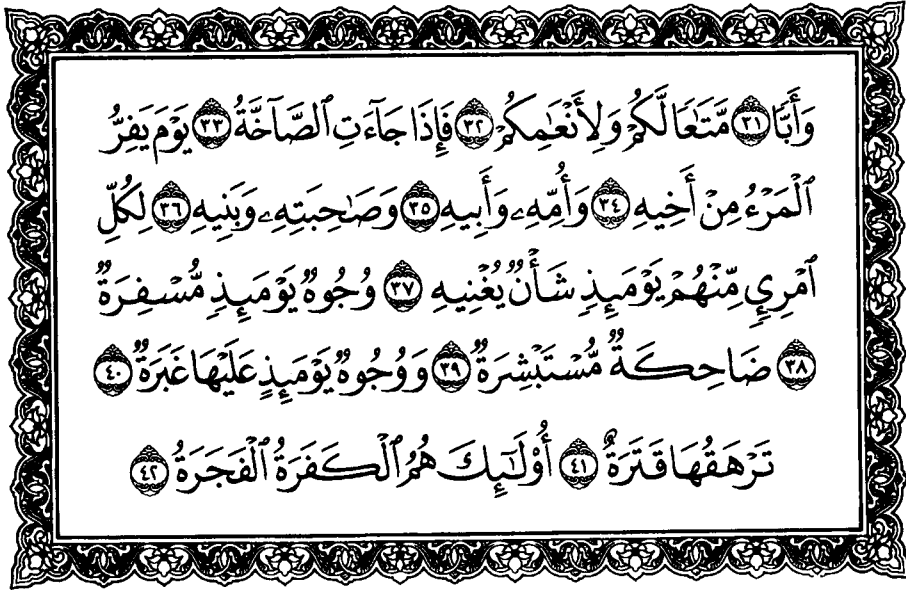 وَأَبًّا ٣١ مَّتَٰعًا لَّكُمْ وَلِأَنْعَٰمِكُمْ ٣٢ فَإِذَا جَآءَتِ ٱلصَّآخَّةُ ٣٣ يَوْمَ يَفِرُّ
ٱلْمَرْءُ مِنْ أَخِيهِ ٣٤ وَأُمِّهِۦ وَأَبِيهِ ٣٥ وَصَٰحِبَتِهِۦ وَبَنِيهِ ٣٦ لِكُلِّ
ٱمْرِئٍ مِّنْهُمْ يَوْمَئِذٍ شَأْنٌ يُغْنِيهِ ٣٧ وُجُوهٌ يَوْمَئِذٍ مُّسْفِرَةٌ
٣٨ ضَاحِكَةٌ مُّسْتَبْشِرَةٌ ٣٩ وَوُجُوهٌ يَوْمَئِذٍ عَلَيْهَا غَبَرَةٌ ٤٠
تَرْهَقُهَا قَتَرَةٌ ٤١ أُو۟لَٰٓئِكَ هُمُ ٱلْكَفَرَةُ ٱلْفَجَرَةُ ٤٢